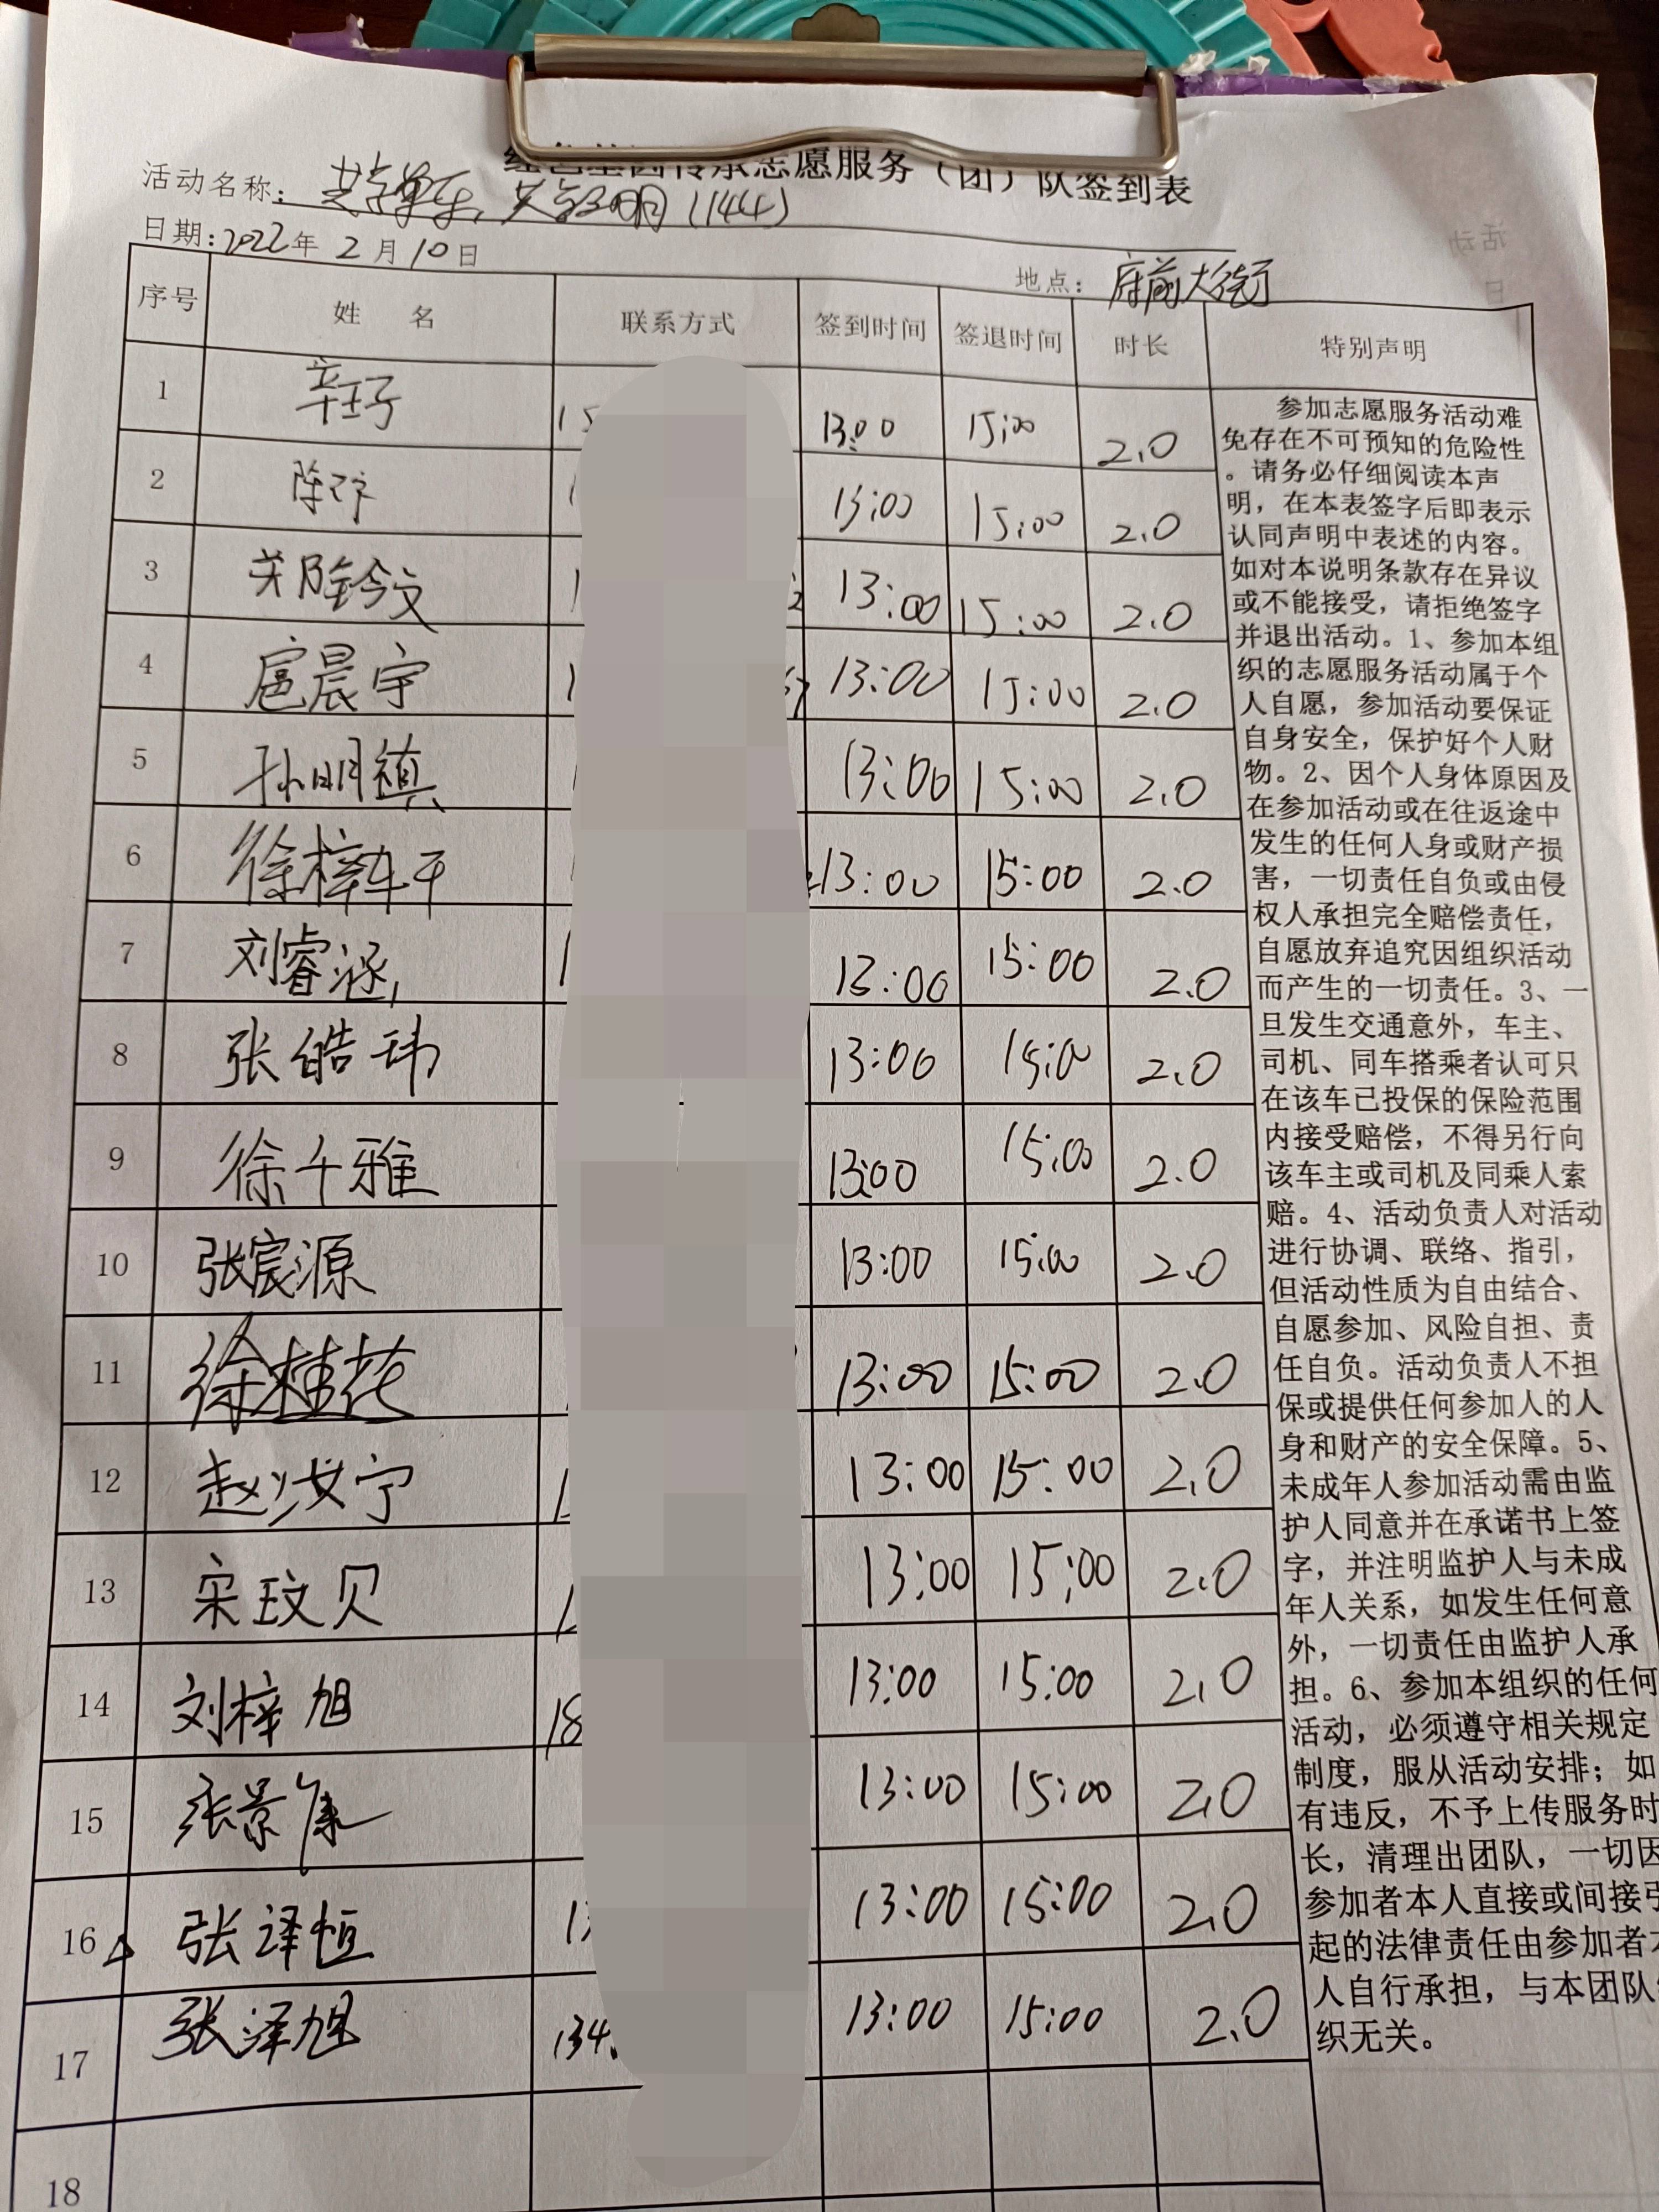 传承志愿服务（团）队签到表
活动名称：共享单车，共享文明（144）
日期：2022年2月10日
地点：府前大街
序号 姓 名 联系方式 签到时间 签退时间 时长 特别声明
1 15 13:00 15:00 2.0
2 陈 1 13:00 15:00 2.0
3 1 13:00 15:00 2.0
4 扈晨宇 1 13:00 15:00 2.0
5 孙明禛 13:00 15:00 2.0
6 徐梓轩 13:00 15:00 2.0
7 刘睿涵 1 13:00 15:00 2.0
8 张皓玮 13:00 15:00 2.0
9 徐千雅 13:00 15:00 2.0
10 张宸源 13:00 15:00 2.0
11 徐桂花 13:00 15:00 2.0
12 赵汝宁 13:00 15:00 2.0
13 宋玟贝 13:00 15:00 2.0
14 刘梓旭 18 13:00 15:00 2.0
15 张景康 13:00 15:00 2.0
16 张译恒 13 13:00 15:00 2.0
17 张泽旭 134 13:00 15:00 2.0
18
参加志愿服务活动难
免存在不可预知的危险性
。请务必仔细阅读本声
明，在本表签字后即表示
认同声明中表述的内容。
如对本说明条款存在异议
或不能接受，请拒绝签字
并退出活动。1、参加本组
织的志愿服务活动属于个
人自愿，参加活动要保证
自身安全，保护好个人财
物。2、因个人身体原因及
在参加活动或在往返途中
发生的任何人身或财产损
害，一切责任自负或由侵
权人承担完全赔偿责任，
自愿放弃追究因组织活动
而产生的一切责任。3、一
旦发生交通意外，车主、
司机、同车搭乘者认可只
在该车已投保的保险范围
内接受赔偿，不得另行向
该车主或司机及同乘人索
赔。4、活动负责人对活动
进行协调、联络、指引，
但活动性质为自由结合、
自愿参加、风险自担、责
任自负。活动负责人不担
保或提供任何参加人的人
身和财产的安全保障。5、
未成年人参加活动需由监
护人同意并在承诺书上签
字，并注明监护人与未成
年人关系，如发生任何意
外，一切责任由监护人承
担。6、参加本组织的任何
活动，必须遵守相关规定
制度，服从活动安排；如
有违反，不予上传服务时
长，清理出团队，一切因
参加者本人直接或间接引
起的法律责任由参加者本
人自行承担，与本团队组
织无关。